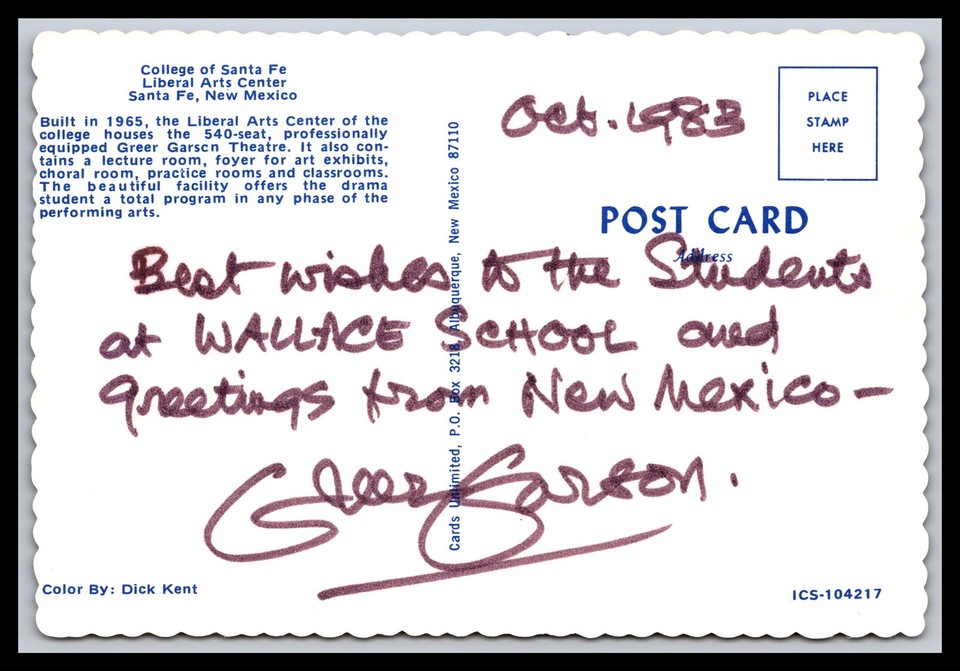 College of Santa Fe
Liberal Arts Center
Santa Fe, New Mexico
Built in 1965, the Liberal Arts Center of the
college houses the 540-seat, professionally
equipped Greer Garscn Theatre. It also con-
tains a lecture room, foyer for art exhibits,
choral room, practice rooms and classrooms.
The beautiful facility offers the drama
student a total program in any phase of the
performing arts.
Oct. 1983
PLACE
STAMP
HERE
POST CARD
Address
Best wishes to the Students
at WALLACE SCHOOL and
Greetings from New Mexico—
Greer Garson.
Cards Unlimited, P.O. Box 3218, Albuquerque, New Mexico 87110
Color By: Dick Kent
ICS-104217